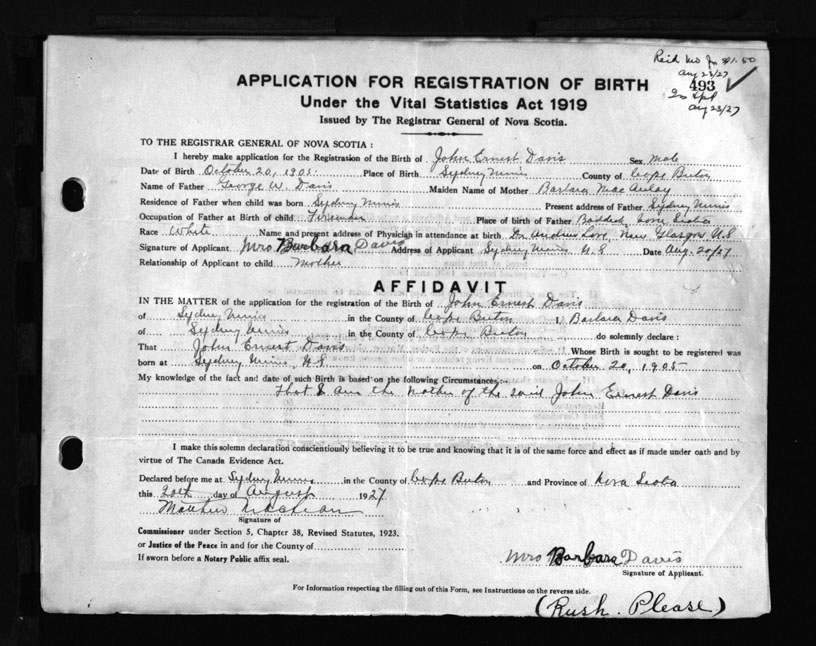 Aug 23/27
APPLICATION FOR REGISTRATION OF BIRTH 493
Under the Vital Statistics Act 1919
Aug 23/27
Issued by The Registrar General of Nova Scotia.
TO THE REGISTRAR GENERAL OF NOVA SCOTIA:
I hereby make application for the Registration of the Birth of John Ernest Davis Sex male
Date of Birth October 20, 1905 Place of Birth Sydney Mines County of Cape Breton
Name of Father George W. Davis Maiden Name of Mother Barbara MacAulay
Residence of Father when child was born Sydney Mines Present address of Father Sydney Mines
Occupation of Father at Birth of child Fireman Place of birth of Father Baddeck, Nova Scotia
Race White Name and present address of Physician in attendance at birth Dr. New Glasgow N.S
Signature of Applicant Mrs Barbara Davis Address of Applicant Sydney Mines N.S Date Aug. 20/27
Relationship of Applicant to child Mother
AFFIDAVIT
IN THE MATTER of the application for the registration of the Birth of John Ernest Davis
of Sydney Mines in the County of Cape Breton I, Barbara Davis
of Sydney Mines in the County of Cape Breton do solemnly declare:
That John Ernest Davis Whose Birth is sought to be registered was
born at Sydney Mines, N.S on October 20, 1905
My knowledge of the fact and date of such Birth is based on the following Circumstances:—
That I am the mother of the said John Ernest Davis
I make this solemn declaration conscientiously believing it to be true and knowing that it is of the same force and effect as if made under oath and by
virtue of The Canada Evidence Act.
Declared before me at Sydney Mines in the County of Cape Breton and Province of Nova Scotia
this 20th day of August 1927
Signature of
Commissioner under Section 5, Chapter 38, Revised Statutes, 1923.
or Justice of the Peace in and for the County of
If sworn before a Notary Public affix seal.
Mrs Barbara Davis
Signature of Applicant.
For Information respecting the filling out of this Form, see Instructions on the reverse side.
(Rush. Please)